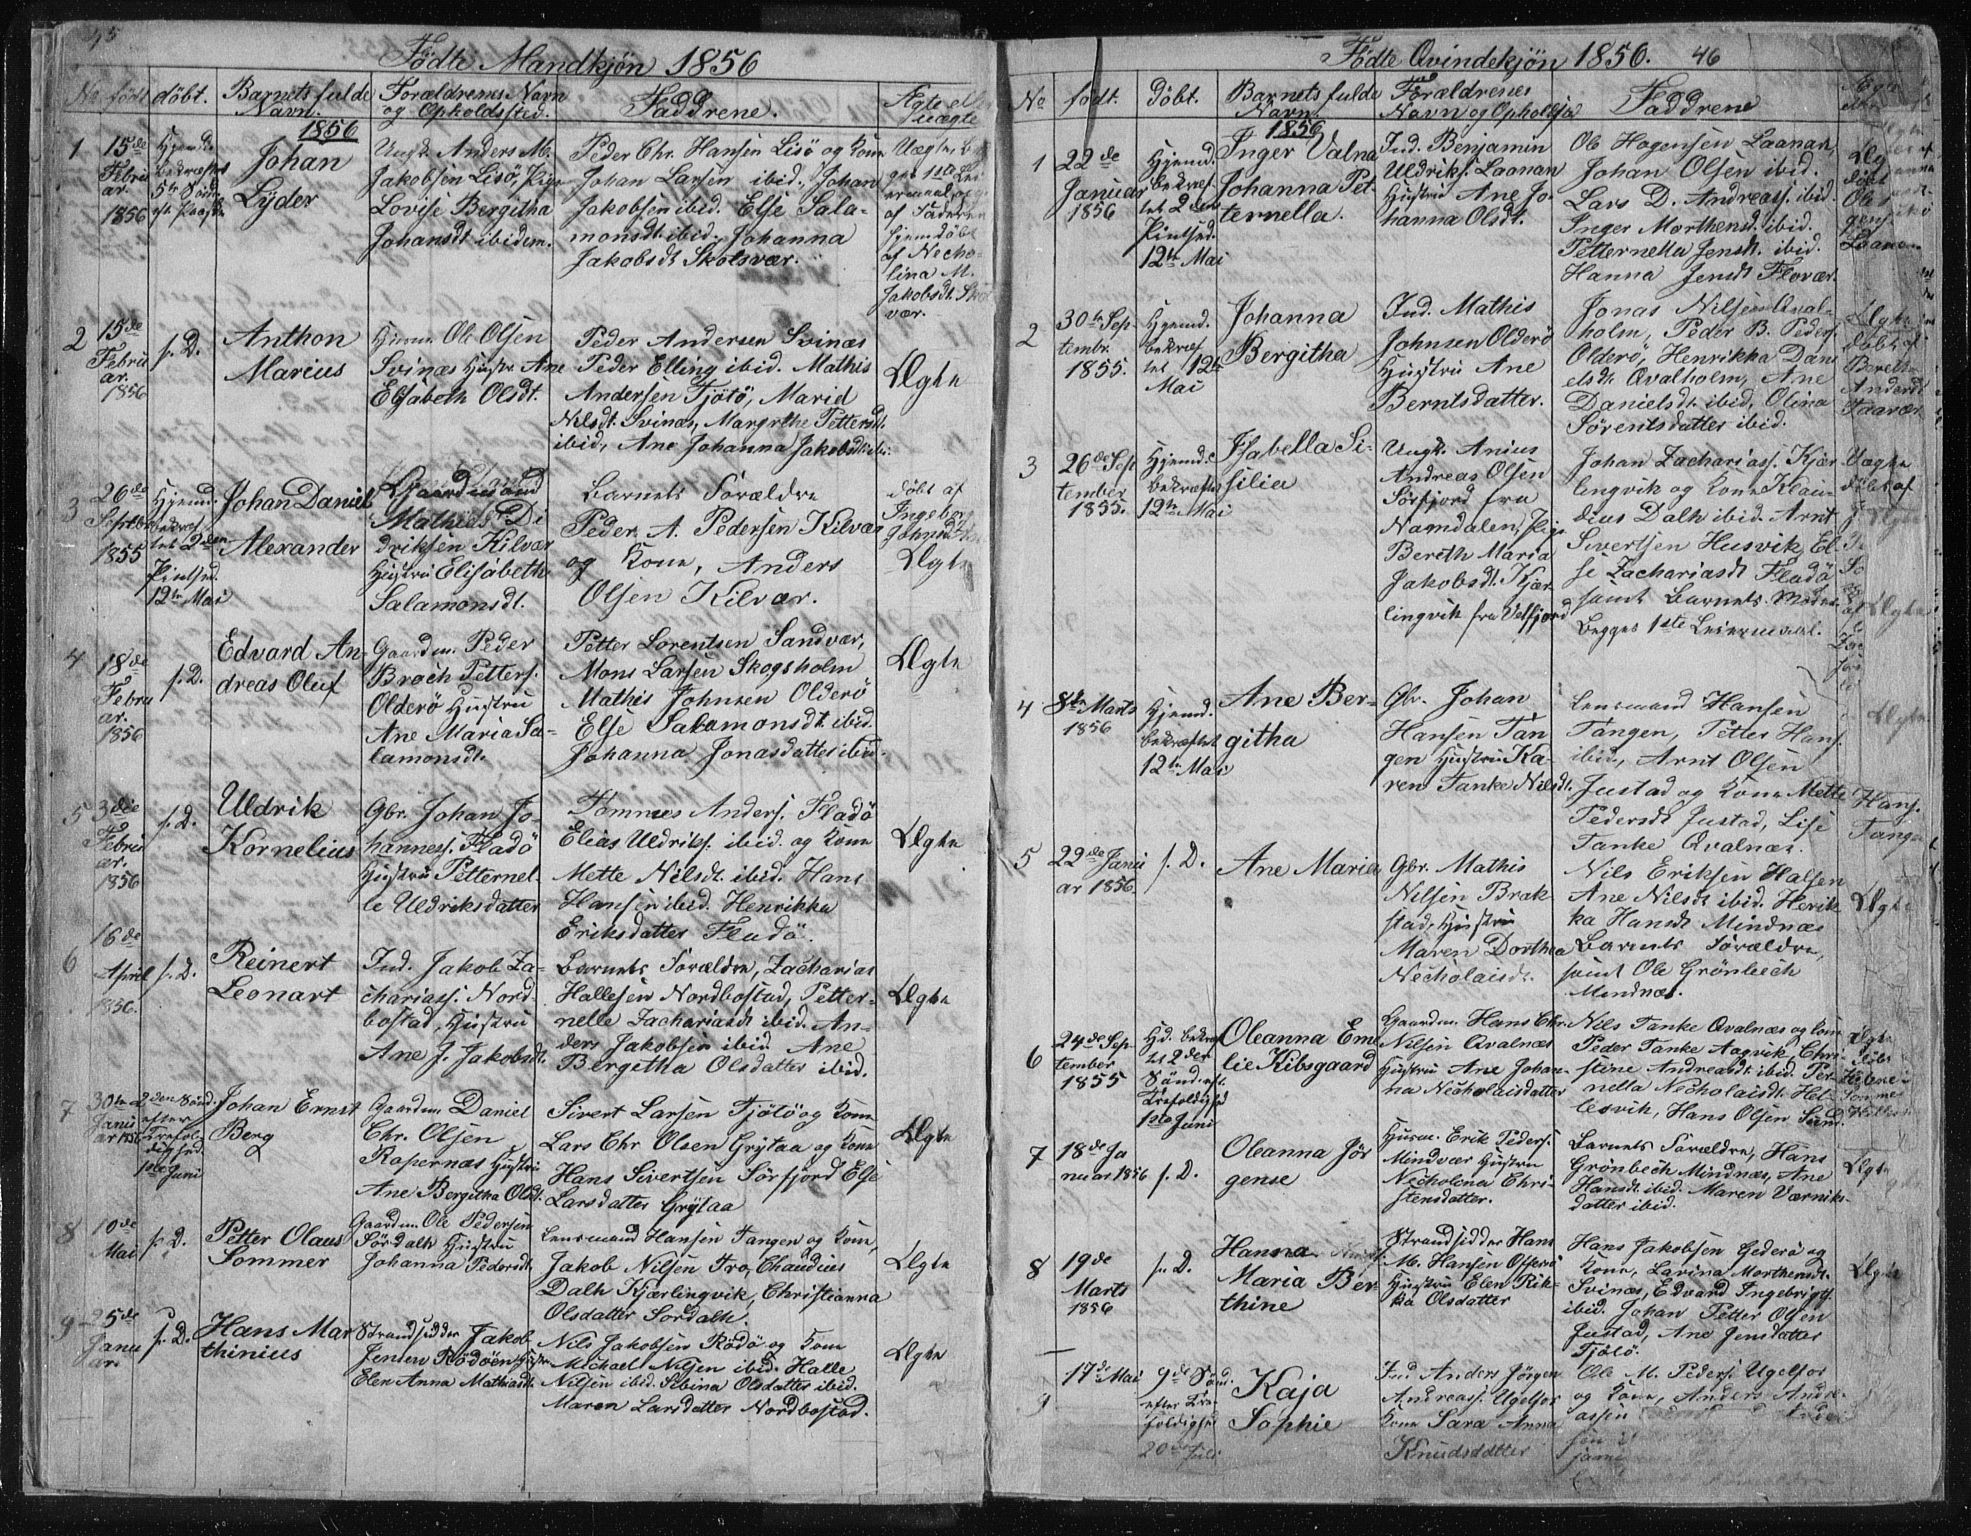 45
Födte Mandkjön 1856
No født döbt. Barnets fulde Navn. Forældrenes Navn og Opholdssted. Faddrene. Ægte el. uægte
1856
1 15de Februar 1856
Hjemd. bekræftet 5te Sönd. eft. Paaske
Johan Lyder
Ungk. Anders M.
Jakobsen Lisö, Pige
Lovise Bergitha
Johansdt ibidem.
Peder Chr. Hansen Lisö og Kone
Johan Larsen ibid. Johan
Jakobsen ibid. Else Sala-
monsdt. ibid. Johanna
Jakobsdt Skotsvær.
Uægte
af Faderen
hjemdöbt
af Necho-
lina M.
Jakobsdt.
vær.
2 15de Februar. 1856
s. D.
Anthon
Marius
Huusm. Ole Olsen
Svinæs Hustr. Ane
Elisabeth Olsdt.
Peder Andersen Svinæs
Peder Elling ibid. Mathis
Andersen Tjötö, Marid
Nilsdt. Svinæs, Margrethe Pettersdt.
ibid, Ane Johanna Jakobsdt ibi.
Ægte
3 26de Septbr 1855
Hjemd. bekræftet 2den Pintsed. 12te Mai
Johan Daniel
Alexander
Gaardmand
Mathias Di
driksen Kilvær
Hustru Elisabeth
Salamonsdt.
Barnets Forældre
Peder A. Pedersen Kilvær
og Kone, Anders
Olsen Kilvær.
döbt af
Ingeborg
Johnsdt.
Ægte
4 18de Februar. 1856
s. D.
Edvard An-
dreas Oluf
Gaardm. Peder
Broch Petters.
Olderö Hustru
Ane Maria Sa-
lamonsdt.
Petter Lorentsen Sandvær,
Mons Larsen Skogsholm
Mathis Johnsen Olderö
Else Salamonsdt. ibid.
Johanna Jonasdatter ibid.
Ægte
5 3die Februar. 1856
s. D.
Uldrik
Kornelius
Gbr. Johan Jo-
hanness. Fladö
Hustru Petternel-
le Uldriksdatter
Tommes Anders. Fladö
Elias Uldriks. ibid. og Kone
Mette Nilsdt. ibid. Hans
Hansen ibid. Henrikka
Eriksdatter Fladö.
Ægte
6 16de April 1856.
s. D.
Reinert
Leonart
Ind. Jakob Za-
chariass. Nord-
bostad, Hustru
Ane J. Jakobsdt.
Barnets Forældre, Zacharias
Hallesen Nordbostad, Petter-
nelle Zachariasdt ibid. An-
ders Jakobsen ibid. Ane
Bergitha Olsdatter ibid.
Ægte
7 30te Januar 1856
2den Sönd. efter Trefoldighed. 1ste Juni
Johan Ernst
Berg
Gaardm. Daniel
Chr. Olsen
Rapernæs Hustru
Ane Bergitha Olsdt.
Sivert Larsen Tjötö og Kone
Lars Chr Olsen Grytaa og Kone
Hans Sivertsen Sörfjord Else
Larsdatter Grytaa
Ægte
8 10de Mai
s. D.
Petter Olaus
Sommer
Gaardm. Ole Pedersen
Sördalh Hustru
Johanna Pedersdt.
Lensmand Hansen Tangen og Kone,
Jakob Nilsen Tro, Chaudius
Dalh Kjærlingvik, Christianna
Olsdatter Sördalh.
Ægte
9 25de Januar.
s. D.
Hans Mar
thinius
Strandsidder Jakob
Jensen Rödöen Hustru
Elen Anna Mathiasdt.
Nils Jakobsen Rödö og Kone
Michael Nilsen ibid. Halle
Nilsen ibid. Sibina Olsdatter ibid.
Maren Larsdatter Nordbostad.
Ægte
Födte Qvindekjön 1856. 46
No födt. Döbt. Barnets fulde Navn. Forældrenes Navn og Opholdssted Faddrene Ægte eller
1856
1 22de Januar 1856
Hjemd. bekræftet 2den Pintsed. 12te Mai
Inger Valna
Johanna Pet-
ternella.
Ind. Benjamin
Uldriks. Laanan
Hustru Ane Jo-
hanna Olsdt.
Ole Hagensen Laanan,
Johan Olsen ibid.
Lars D. Andreass. ibid.
Inger Morthensd. ibid.
Petternella Jensdt. ibid.
Hanna Jensdt Flovær.
Æg
döbt
Ole
Laanan
2 30te Septembr. 1855.
Hjemd. bekræftet 12te Mai
Johanna
Bergitha
Ind. Mathis
Johnsen Olderö
Hustru Ane
Berntsdatter.
Jonas Nilsen Qval-
holm, Peder B. Peders.
Olderö, Henrikka Dani
elsdt. Qvalholm, Ane
Danielsdt. ibid, Olina
Sörentsdatter ibid.
Ægte
döbt af
Bereth
Andersdt
Taavær.
3 26de September 1855.
Hjemd. bekræftet 12te Mai
Isabella Si-
silia
Ungk. Anius
Andreas Olsen
Sörfjord fra
Namdalen, Pige
Bereth Maria
Jakobsdt. Kjær
lingvik fra Velfjord
Johan Zachariass. Kjær
lingvik og Kone Klau-
dius Dalh ibid. Arnt
Sivertsen Husvik, El-
se Zachariasdt Fladö
samt Barnets Moder
Begges 1ste Leiermaal.
Uægte
döbt af
4 8de Marts 1856
Hjemd. bekræftet 12te Mai
Ane Ber-
githa
Gbr. Johan
Hansen Tan
gen Hustru Ka-
ren Tanke Nilsdt.
Lensmand Hansen
Tangen, Petter Hans.
ibid, Arnt Olsen
Justad og Kone Mette
Pedersdt Justad, Lise
Tanke Qvalnæs.
Ægte
Hans.
Tangen
5 22de Januar 1856.
s. D.
Ane Maria
Gbr. Mathis
Nilsen Brak
stad, Hustru
Maren Dorthea
Necholaisdt.
Nils Eriksen Halsen
Ane Nilsdt ibid. Henrik
ka Hansdt Mindnæs
Barnets Forældre,
samt Ole Grönbech
Mindnæs.
Ægte
6 24de September 1855
Hd. bekræftet 2den Sönd. eft. Trefoldighd 1ste Juni
Oleanna Em
lie Kibsgaard
Gaardm. Hans Chr.
Nilsen Qvalnæs
Hustru Ane Johan-
na Necholaisdatter
Nils Tanke Qvalnæs og Kone
Peder Tanke Aagvik, Chri-
stine Andreasdt. ibid. Pet-
nella Necholaisdt. Hel-
lesvik, Hans Olsen Sund.
Ægte
döbt
Helene
7 18de Januar 1856
s. D.
Oleanna Jör
gense
Husm. Erik Peders.
Mindvær Hustru
Necholena Chri-
stensdatter.
Barnets Forældre, Hans
Grönbech Mindnæs, Ane
Hansdt. ibid. Maren Værniks-
datter ibid.
Ægte
8 19de Marts 1856
s. D.
Hanna
Maria Ber
thine
Strandsidder Hans
M. Hansen Offersö
Hustru Elen Rik-
ka Olsdatter
Hans Jakobsen Gederö og
Kone, Lavina Morthensdt.
Svinæs, Edvard Ingebrigts.
ibid. Johan Petter Olsen
Justad, Ane Jensdatter
Tjötö.
Ægte
9 17de Mai
9de Sönd. efter Trefoldighed 20de Juli
Kaja
Sophie
Ind Anders Jörgen
Andreass. Ugelfor
Kone Sara Anna
Knudsdatter
Ole M. Peders. Ugelfor
og Kone, Anders Andre-
assen